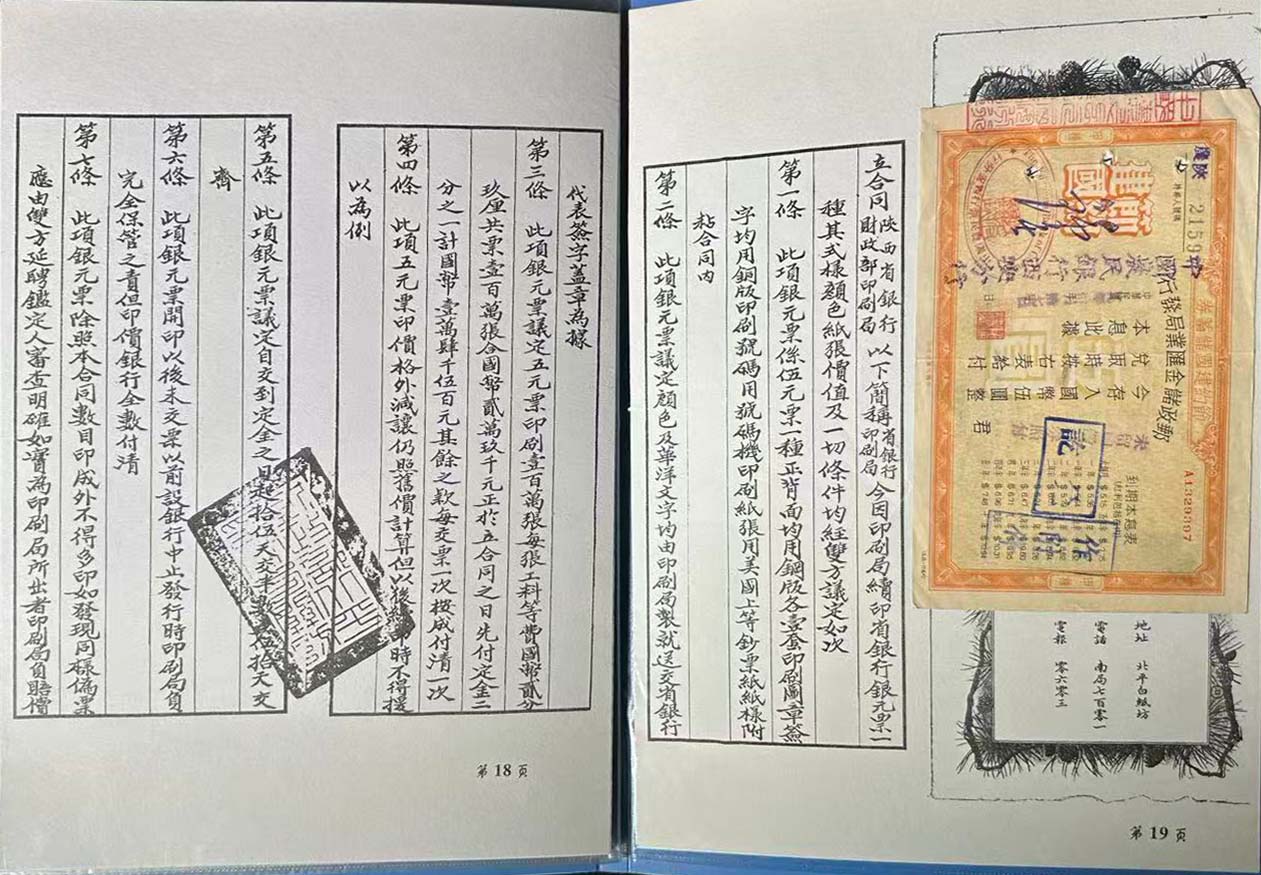 節約建國儲蓄券
A1329397
郵政儲金匯業局發行
2159
到期本息表
君
今存入國幣伍圓整
兌取時按右表給付
本息此據
地址 北平白紙坊
電話 南局七百零一
電報 零六零三
立合同 陝西省銀行 財政部印刷局 以下簡稱 省銀行 印刷局 今因印刷局續印省銀行銀元票一
種其式樣顏色紙張價值及一切條件均經雙方議定如次
第一條 此項銀元票係伍元票一種正背面均用鋼版各壹套印刷圖章簽
字均用銅版印刷號碼用號碼機印刷紙張用美國上等鈔票紙紙樣附
粘合同內
第二條 此項銀元票議定顏色及華洋文字均由印刷局製就送交省銀行
第19頁
代表簽字蓋章為據
第三條 此項銀元票議定五元票印刷壹百萬張每張工料等費國幣貳分
玖厘共票壹百萬張合國幣貳萬玖千元正於立合同之日先付定金二
分之一計國幣壹萬肆千伍百元其餘之款每交票一次按成付清一次
第四條 此項五元票印價格外減讓仍照舊價計算但以後續印時不得援
以為例
第五條 此項銀元票議定自交到定金之日起拾伍天交半數伍拾天交
齊
第六條 此項銀元票開印以後未交票以前設銀行中止發行時印刷局負
完全保管之責但印價銀行全數付清
第七條 此項銀元票除照本合同數目印成外不得多印如發現同樣偽票
應由雙方延聘鑑定人審查明確如實為印刷局所出者印刷局負賠償
第18頁